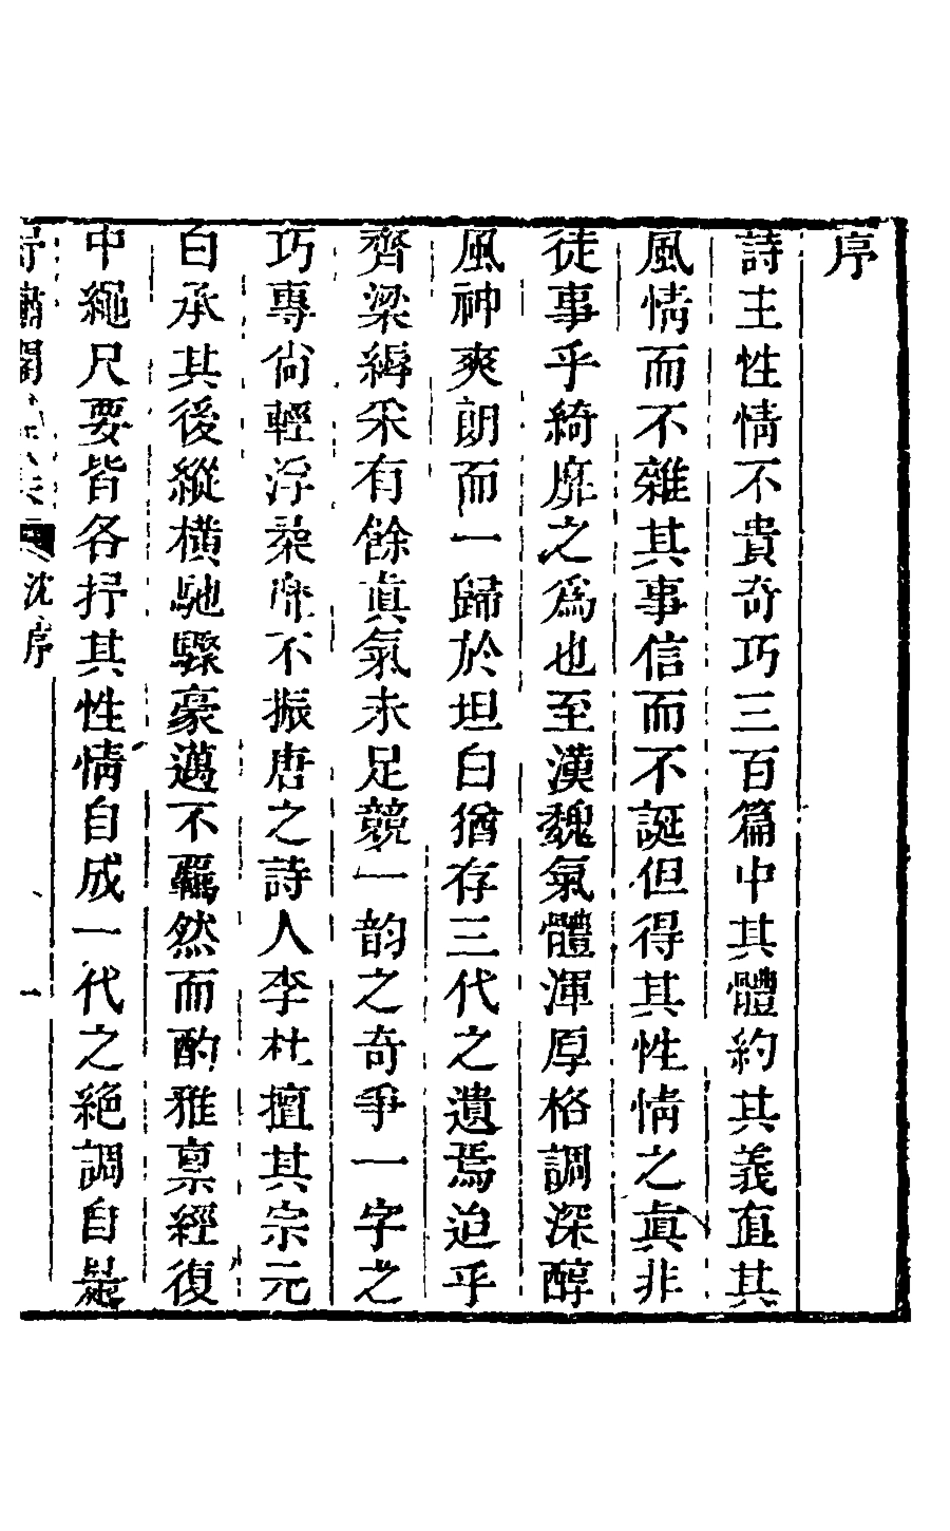 序
詩主性情不貴奇巧三百篇中其體約其義直其
風情而不雜其事信而不誕但得其性情之眞非
徒事乎綺靡之爲也至漢魏氣體渾厚格調深醇
風神爽朗而一歸於坦白猶存三代之遺焉迨乎
齊梁緝采有餘眞氣未足競一韵之奇爭一字之
巧專尙輕浮柔靡不振唐之詩人李杜擅其宗元
白承其後縱橫馳驟豪邁不羈然而酌雅禀經復
中繩尺要皆各抒其性情自成一代之絶調自是
沈序
一